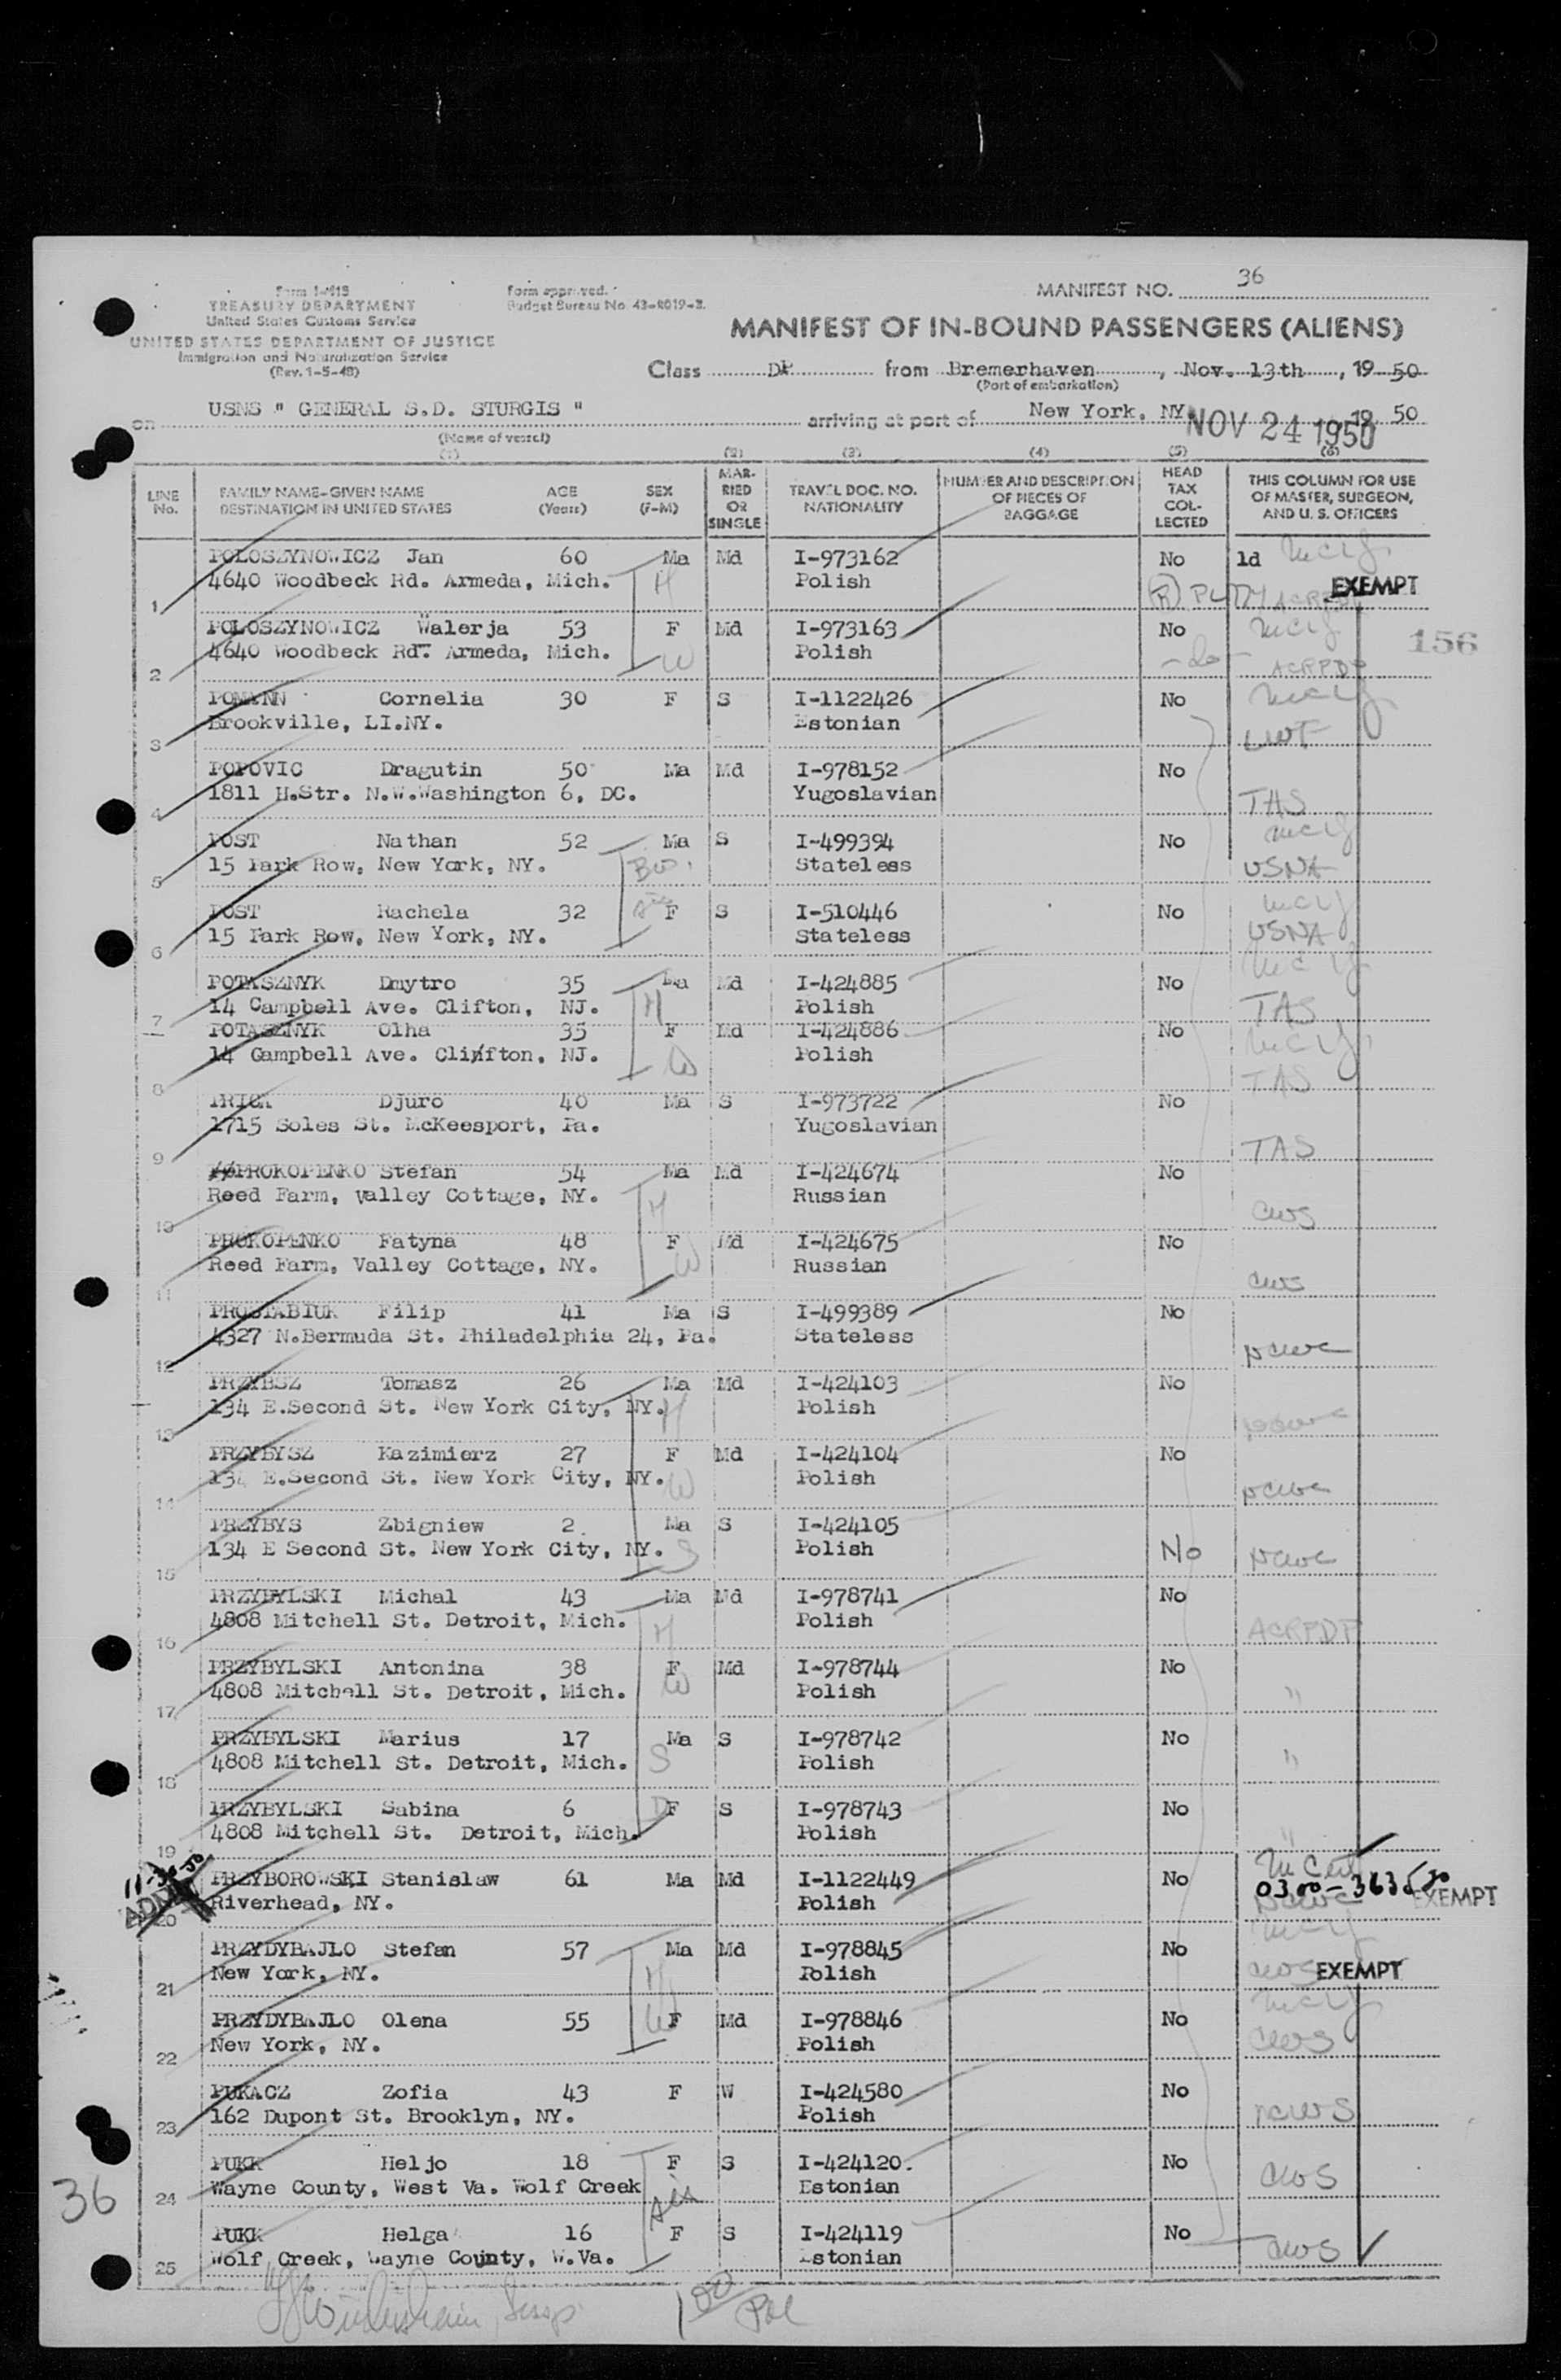 Form I-415
TREASURY DEPARTMENT
United States Customs Service
UNITED STATES DEPARTMENT OF JUSTICE
Immigration and Naturalization Service
(Rev. 1-5-48)
Form approved.
Budget Bureau No. 43-R019-2.
MANIFEST NO. 36
MANIFEST OF IN-BOUND PASSENGERS (ALIENS)
Class DP from Bremerhaven, Nov. 13th, 19 50
(Port of embarkation)
on USNS " GENERAL S.D. STURGIS " arriving at port of New York, NY. NOV 24 1950 19 50
(Name of vessel)
(1) (2) (3) (4) (5) (6)
LINE No. FAMILY NAME-GIVEN NAME DESTINATION IN UNITED STATES AGE (Years) SEX (F-M) MARRIED OR SINGLE TRAVEL DOC. NO. NATIONALITY NUMBER AND DESCRIPTION OF PIECES OF BAGGAGE HEAD TAX COLLECTED THIS COLUMN FOR USE OF MASTER, SURGEON, AND U. S. OFFICERS
POLOSZYNOWICZ Jan 60 Ma Md I-973162 No 1d
1 4640 Woodbeck Rd. Armeda, Mich. H Polish EXEMPT
POLOSZYNOWICZ Walerja 53 F Md I-973163 No 156
2 4640 Woodbeck Rd. Armeda, Mich. W Polish ACRPDP
POMANN Cornelia 30 F S I-1122426 No
3 Brookville, LI.NY. Estonian LWF
POPOVIC Dragutin 50 Ma Md I-978152 No
4 1811 H.Str. N.W.Washington 6, DC. Yugoslavian TAS
POST Nathan 52 Ma S I-499394 No
5 15 Park Row, New York, NY. Stateless USNA
POST Rachela 32 F S I-510446 No
6 15 Park Row, New York, NY. Stateless USNA
POTASZNYK Dmytro 35 Ma Md I-424885 No
7 14 Campbell Ave. Clifton, NJ. H Polish TAS
POTASZNYK Olha 35 F Md I-424886 No
8 14 Campbell Ave. Clinfton, NJ. W Polish TAS
PRICA Djuro 40 Ma S I-973722 No
9 1715 Soles St. McKeesport, Pa. Yugoslavian TAS
PROKOPENKO Stefan 54 Ma Md I-424674 No
10 Reed Farm, Valley Cottage, NY. H Russian CWS
PROKOPENKO Fatyna 48 F Md I-424675 No
11 Reed Farm, Valley Cottage, NY. W Russian CWS
PROSTABIUK Filip 41 Ma S I-499389 No
12 4327 N.Bermuda St. Philadelphia 24, Pa. Stateless NCWC
PRZYBSZ Tomasz 26 Ma Md I-424103 No
13 134 E.Second St. New York City, NY. H Polish NCWC
PRZYBYSZ Kazimierz 27 F Md I-424104 No
14 134 E.Second St. New York City, NY. W Polish NCWC
PRZYBYS Zbigniew 2 Ma S I-424105
15 134 E Second St. New York City, NY. S Polish No NCWC
PRZYBYLSKI Michal 43 Ma Md I-978741 No
16 4808 Mitchell St. Detroit, Mich. H Polish ACRPDP
PRZYBYLSKI Antonina 38 F Md I-978744 No
17 4808 Mitchell St. Detroit, Mich. W Polish "
PRZYBYLSKI Marius 17 Ma S I-978742 No
18 4808 Mitchell St. Detroit, Mich. S Polish "
PRZYBYLSKI Sabina 6 D F S I-978743 No
19 4808 Mitchell St. Detroit, Mich. Polish "
PRZYBOROWSKI Stanislaw 61 Ma Md I-1122449 No
20 Riverhead, NY. Polish NCWC EXEMPT
PRZYDYBAJLO Stefan 57 Ma Md I-978845 No
21 New York, NY. H Polish CWS EXEMPT
PRZYDYBAJLO Olena 55 W F Md I-978846 No
22 New York, NY. Polish CWS
PUKACZ Zofia 43 F W I-424580 No
23 162 Dupont St. Brooklyn, NY. Polish NCWS
PUKK Heljo 18 F S I-424120. No
24 Wayne County, West Va. Wolf Creek Estonian CWS
PUKK Helga 16 F S I-424119 No
25 Wolf Creek, Wayne County, W.Va. Estonian CWS
36